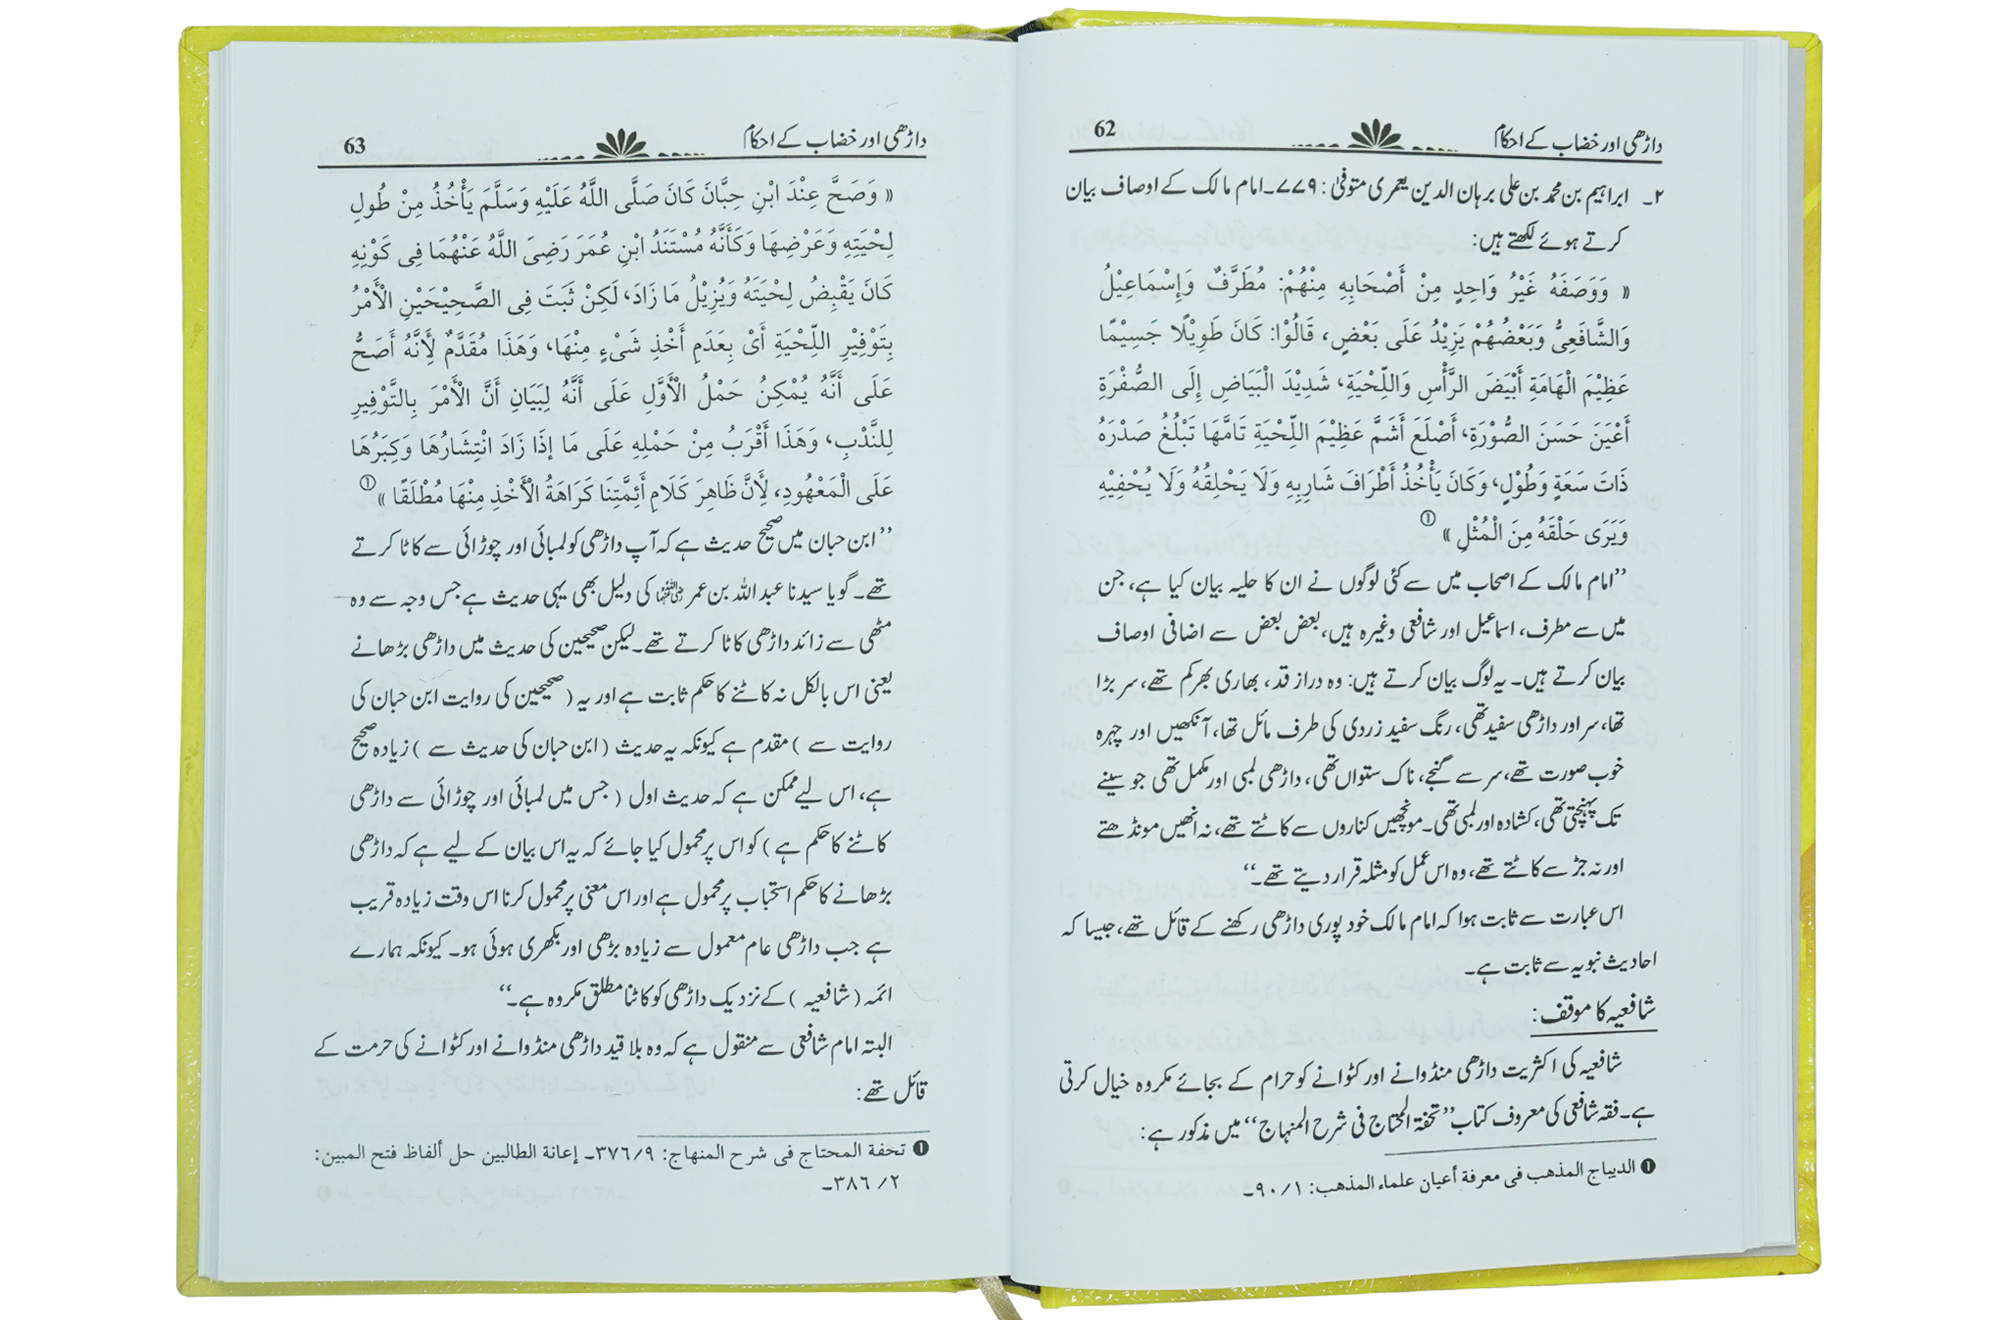 داڑھی اور خضاب کے احکام 62
۲۔ ابراہیم بن محمد بن علی برہان الدین یعمری متوفیٰ : ۷۷۹۔ امام مالک کے اوصاف بیان
کرتے ہوئے لکھتے ہیں:
« وَوَصَفَهُ غَيْرُ وَاحِدٍ مِنْ أَصْحَابِهِ مِنْهُمْ: مُطَرَّفٌ وَإِسْمَاعِيْلُ
وَالشَّافَعِىُّ وَبَعْضُهُمْ يَزِيْدُ عَلَى بَعْضٍ، قَالُوْا: كَانَ طَوِيْلًا جَسِيْمًا
عَظِيْمَ الْهَامَةِ أَبْيَضَ الرَّأْسِ وَاللِّحْيَةِ، شَدِيْدَ الْبَيَاضِ إِلَى الصُّفْرَةِ
أَعْيَنَ حَسَنَ الصُّوْرَةِ، أَصْلَعَ أَشَمَّ عَظِيْمَ اللِّحْيَةِ تَامَّهَا تَبْلُغُ صَدْرَهُ
ذَاتَ سَعَةٍ وَطُوْلٍ، وَكَانَ يَأْخُذُ أَطْرَافَ شَارِبِهِ وَلَا يَحْلِقُهُ وَلَا يُحْفِيْهِ
وَيَرَى حَلْقَهُ مِنَ الْمُثْلِ » ①
”امام مالک کے اصحاب میں سے کئی لوگوں نے ان کا حلیہ بیان کیا ہے، جن
میں سے مطرف، اسماعیل اور شافعی وغیرہ ہیں، بعض بعض سے اضافی اوصاف
بیان کرتے ہیں۔ یہ لوگ بیان کرتے ہیں: وہ دراز قد، بھاری بھرکم تھے، سر بڑا
تھا، سر اور داڑھی سفید تھی، رنگ سفید زردی کی طرف مائل تھا، آنکھیں اور چہرہ
خوب صورت تھے، سر سے گنجے، ناک ستواں تھی، داڑھی لمبی اور مکمل تھی جو سینے
تک پہنچتی تھی، کشادہ اور لمبی تھی۔ مونچھیں کناروں سے کاٹتے تھے، نہ انھیں مونڈھتے
اور نہ جڑ سے کاٹتے تھے، وہ اس عمل کو مثلہ قرار دیتے تھے۔“
اس عبارت سے ثابت ہوا کہ امام مالک خود پوری داڑھی رکھنے کے قائل تھے، جیسا کہ
احادیث نبویہ سے ثابت ہے۔
شافعیہ کا موقف:
شافعیہ کی اکثریت داڑھی منڈوانے اور کٹوانے کو حرام کے بجائے مکروہ خیال کرتی
ہے۔ فقہ شافعی کی معروف کتاب ”تحفة المحتاج في شرح المنهاج“ میں مذکور ہے:
❶ الديباج المذهب فى معرفة أعيان علماء المذهب: ۱/ ۹۰۔
داڑھی اور خضاب کے احکام 63
« وَصَحَّ عِنْدَ ابْنِ حِبَّانَ كَانَ صَلَّى اللَّهُ عَلَيْهِ وَسَلَّمَ يَأْخُذُ مِنْ طُولِ
لِحْيَتِهِ وَعَرْضِهَا وَكَأَنَّهُ مُسْتَنَدُ ابْنِ عُمَرَ رَضِىَ اللَّهُ عَنْهُمَا فِى كَوْنِهِ
كَانَ يَقْبِضُ لِحْيَتَهُ وَيُزِيْلُ مَا زَادَ، لَكِنْ ثَبَتَ فِى الصَّحِيْحَيْنِ الْأَمْرُ
بِتَوْفِيْرِ اللِّحْيَةِ أَىْ بِعَدَمِ أَخْذِ شَىْءٍ مِنْهَا، وَهَذَا مُقَدَّمٌ لِأَنَّهُ أَصَحُّ
عَلَى أَنَّهُ يُمْكِنُ حَمْلُ الْأَوَّلِ عَلَى أَنَّهُ لِبَيَانِ أَنَّ الْأَمْرَ بِالتَّوْفِيْرِ
لِلنَّدْبِ، وَهَذَا أَقْرَبُ مِنْ حَمْلِهِ عَلَى مَا إِذَا زَادَ انْتِشَارُهَا وَكِبَرُهَا
عَلَى الْمَعْهُودِ، لِأَنَّ ظَاهِرَ كَلَامِ أَئِمَّتِنَا كَرَاهَةُ الْأَخْذِ مِنْهَا مُطْلَقًا » ①
”ابن حبان میں صحیح حدیث ہے کہ آپ داڑھی کو لمبائی اور چوڑائی سے کاٹا کرتے
تھے۔ گویا سیدنا عبد اللہ بن عمر رضی اللہ عنہما کی دلیل بھی یہی حدیث ہے جس وجہ سے وہ
مٹھی سے زائد داڑھی کاٹا کرتے تھے۔ لیکن صحیحین کی حدیث میں داڑھی بڑھانے
یعنی اس بالکل نہ کاٹنے کا حکم ثابت ہے اور یہ (صحیحین کی روایت ابن حبان کی
روایت سے) مقدم ہے کیونکہ یہ حدیث (ابن حبان کی حدیث سے) زیادہ صحیح
ہے، اس لیے ممکن ہے کہ حدیث اول (جس میں لمبائی اور چوڑائی سے داڑھی
کاٹنے کا حکم ہے) کو اس پر محمول کیا جائے کہ یہ اس بیان کے لیے ہے کہ داڑھی
بڑھانے کا حکم استحباب پر محمول ہے اور اس معنی پر محمول کرنا اس وقت زیادہ قریب
ہے جب داڑھی عام معمول سے زیادہ بڑھی اور بکھری ہوئی ہو۔ کیونکہ ہمارے
ائمہ (شافعیہ) کے نزدیک داڑھی کو کاٹنا مطلق مکروہ ہے۔“
البتہ امام شافعی سے منقول ہے کہ وہ بلا قید داڑھی منڈوانے اور کٹوانے کی حرمت کے
قائل تھے:
❶ تحفة المحتاج فى شرح المنهاج: ۹/ ۳۷۶۔ إعانة الطالبين حل ألفاظ فتح المبين:
۲/ ۳۸۶۔